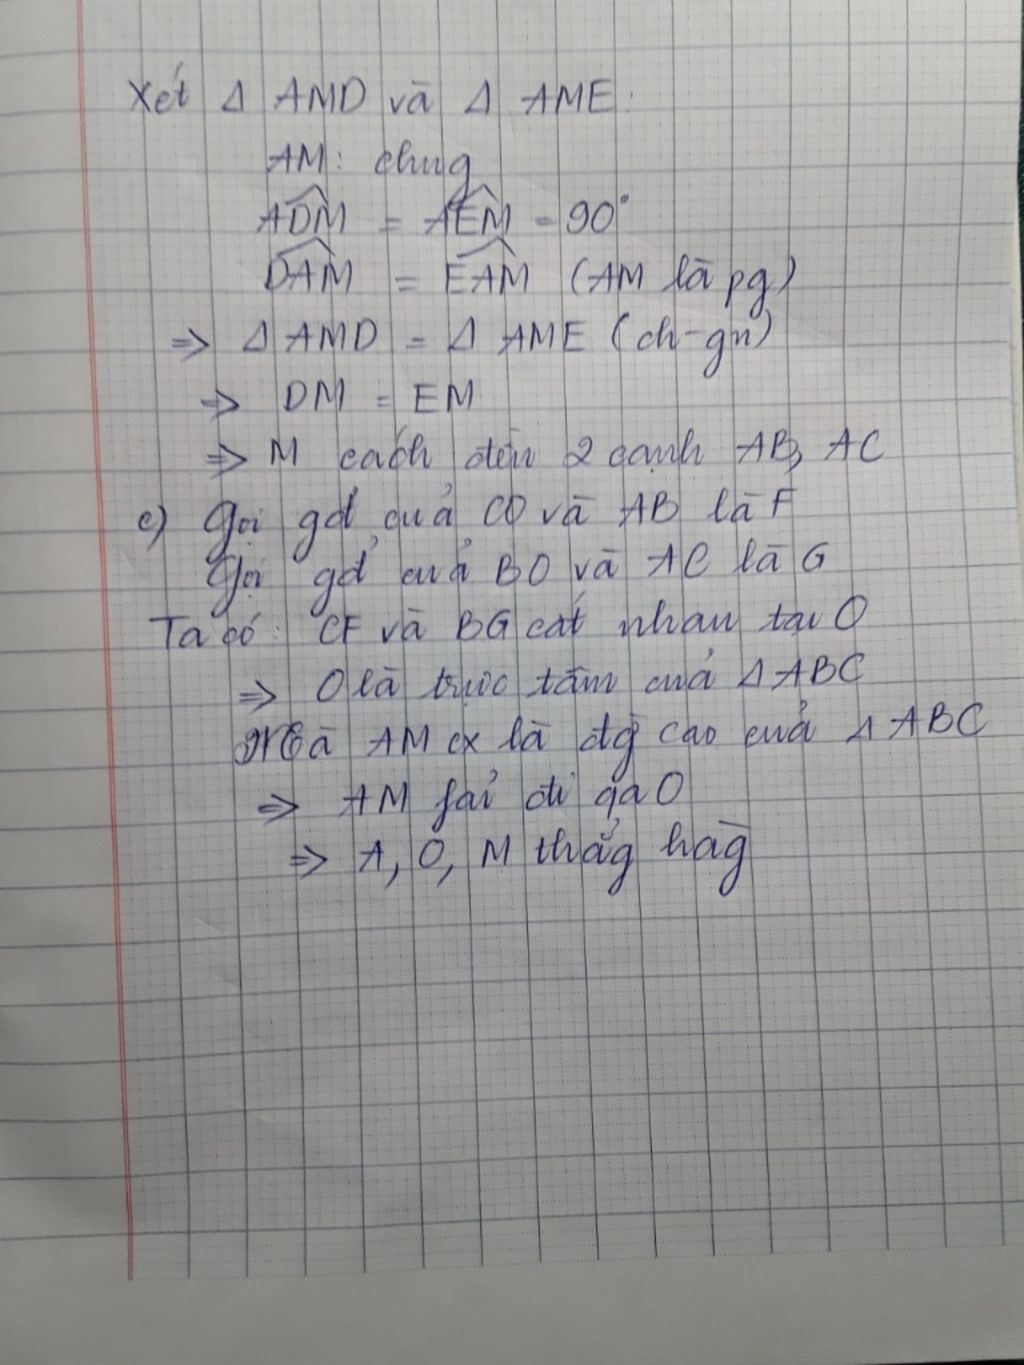 Xét Δ AMD và Δ AME:
AM: chug
ADM = AEM = 90°
DAM = EAM (AM là pg)
=> Δ AMD = Δ AME (ch-gn)
=> DM = EM
=> M cách đến 2 cạnh AB, AC
c) Gọi gđ của CO và AB là F
Gọi gđ của BO và AC là G
Ta có: CF và BG cắt nhau tại O
=> O là trực tâm của Δ ABC
Mà AM cx là đg cao của Δ ABC
=> AM fải đi qa O
=> A, O, M thẳg hàg